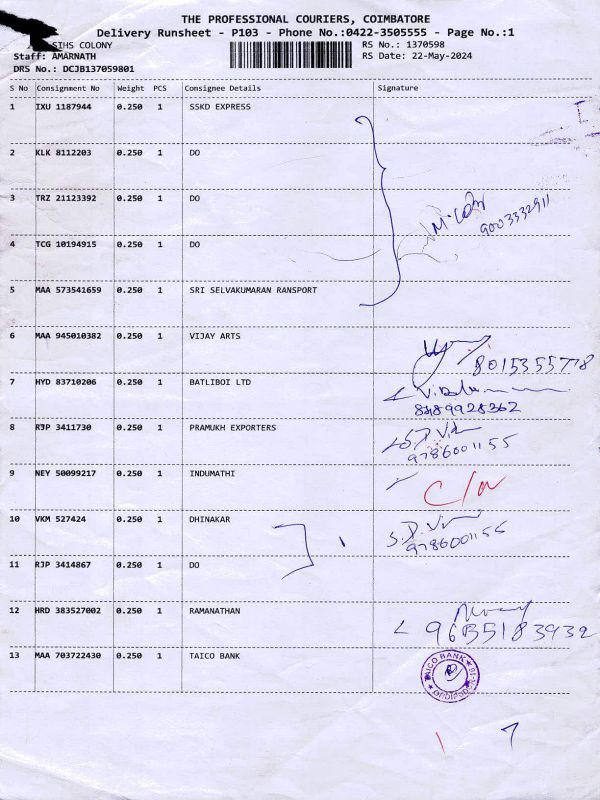 THE PROFESSIONAL COURIERS, COIMBATORE
Delivery Runsheet - P103 - Phone No.:0422-3505555 - Page No.:1
SIHS COLONY RS No.: 1370598
Staff: AMARNATH RS Date: 22-May-2024
DRS No.: DCJB137059801
S No Consignment No Weight PCS Consignee Details Signature
1 IXU 1187944 0.250 1 SSKD EXPRESS
2 KLK 8112203 0.250 1 DO
3 TRZ 21123392 0.250 1 DO
9003332911
4 TCG 10194915 0.250 1 DO
5 MAA 573541659 0.250 1 SRI SELVAKUMARAN RANSPORT
6 MAA 945010382 0.250 1 VIJAY ARTS
8015355778
7 HYD 83710206 0.250 1 BATLIBOI LTD
8489928362
8 RJP 3411730 0.250 1 PRAMUKH EXPORTERS
9786001155
9 NEY 50099217 0.250 1 INDUMATHI
10 VKM 527424 0.250 1 DHINAKAR
9786001155
11 RJP 3414867 0.250 1 DO
12 HRD 383527002 0.250 1 RAMANATHAN
9635183932
13 MAA 703722430 0.250 1 TAICO BANK
TAICO BANK